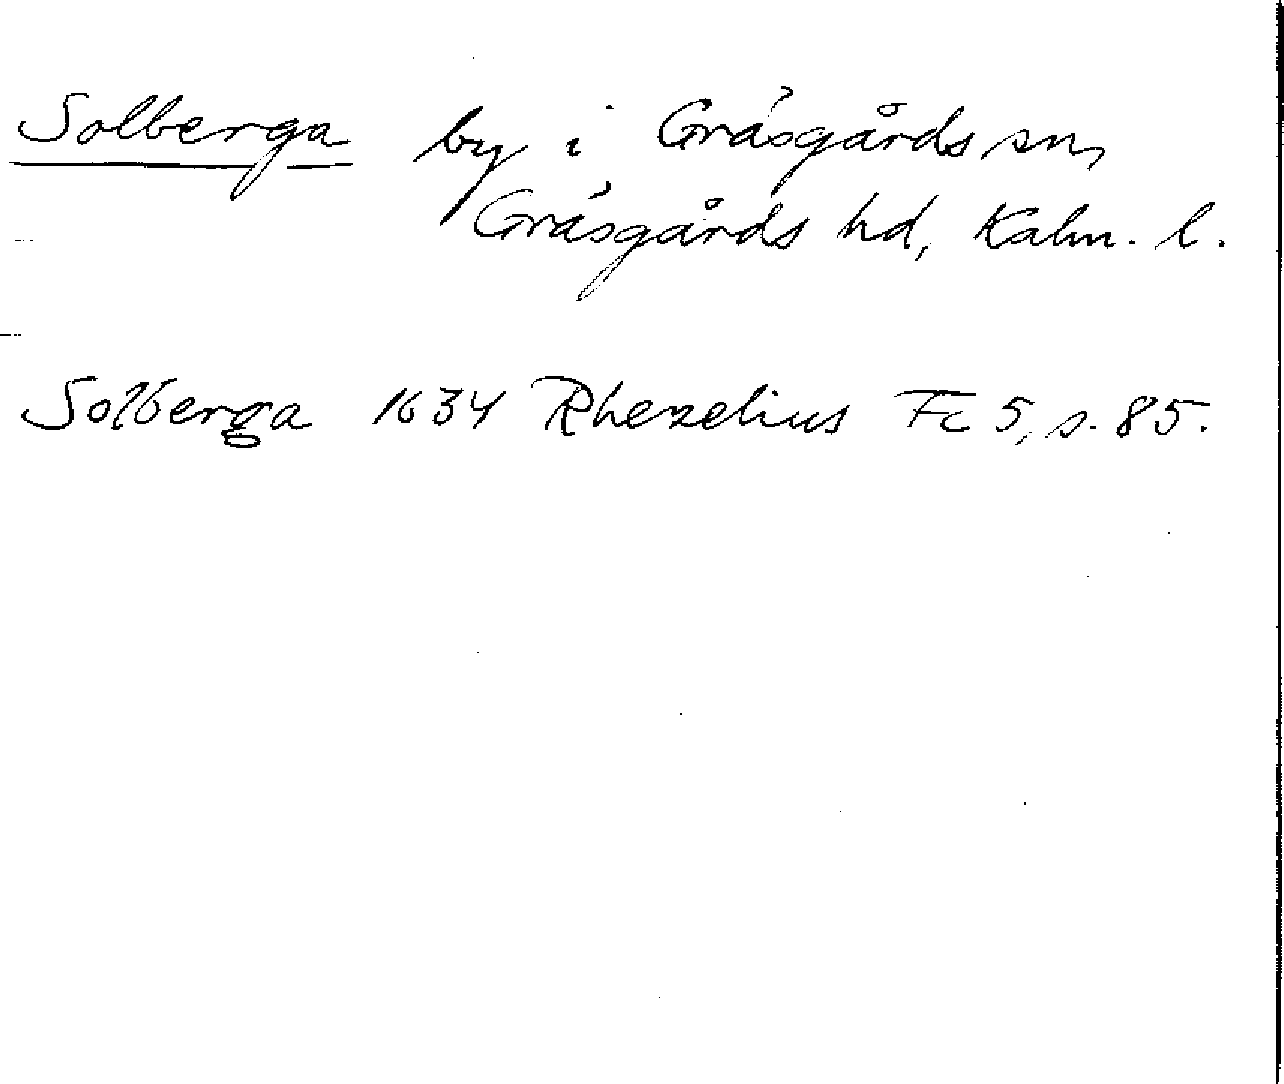 Solberga by i Gräsgårds sn,
Gräsgårds hd, Kalm. l.
Solberga 1634 Rhezelius Fc 5, s. 85.